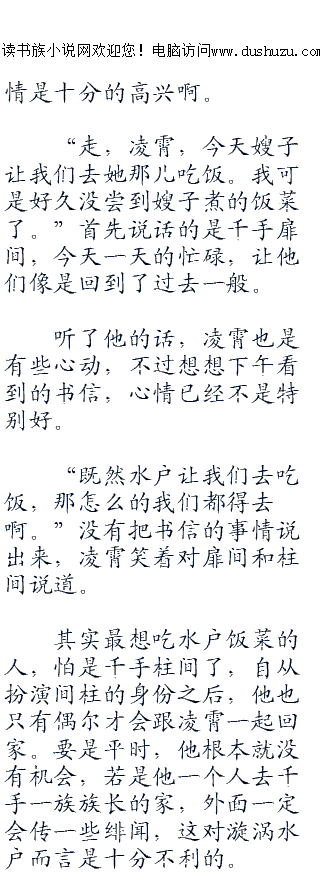 读书族小说网欢迎您！电脑访问www.dushuzu.com
情是十分的高兴啊。
“走，凌霄，今天嫂子
让我们去她那儿吃饭。我可
是好久没尝到嫂子煮的饭菜
了。”首先说话的是千手扉
间，今天一天的忙碌，让他
们像是回到了过去一般。
听了他的话，凌霄也是
有些心动，不过想想下午看
到的书信，心情已经不是特
别好。
“既然水户让我们去吃
饭，那怎么的我们都得去
啊。”没有把书信的事情说
出来，凌霄笑着对扉间和柱
间说道。
其实最想吃水户饭菜的
人，怕是千手柱间了，自从
扮演间柱的身份之后，他也
只有偶尔才会跟凌霄一起回
家。要是平时，他根本就没
有机会，若是他一个人去千
手一族族长的家，外面一定
会传一些绯闻，这对漩涡水
户而言是十分不利的。